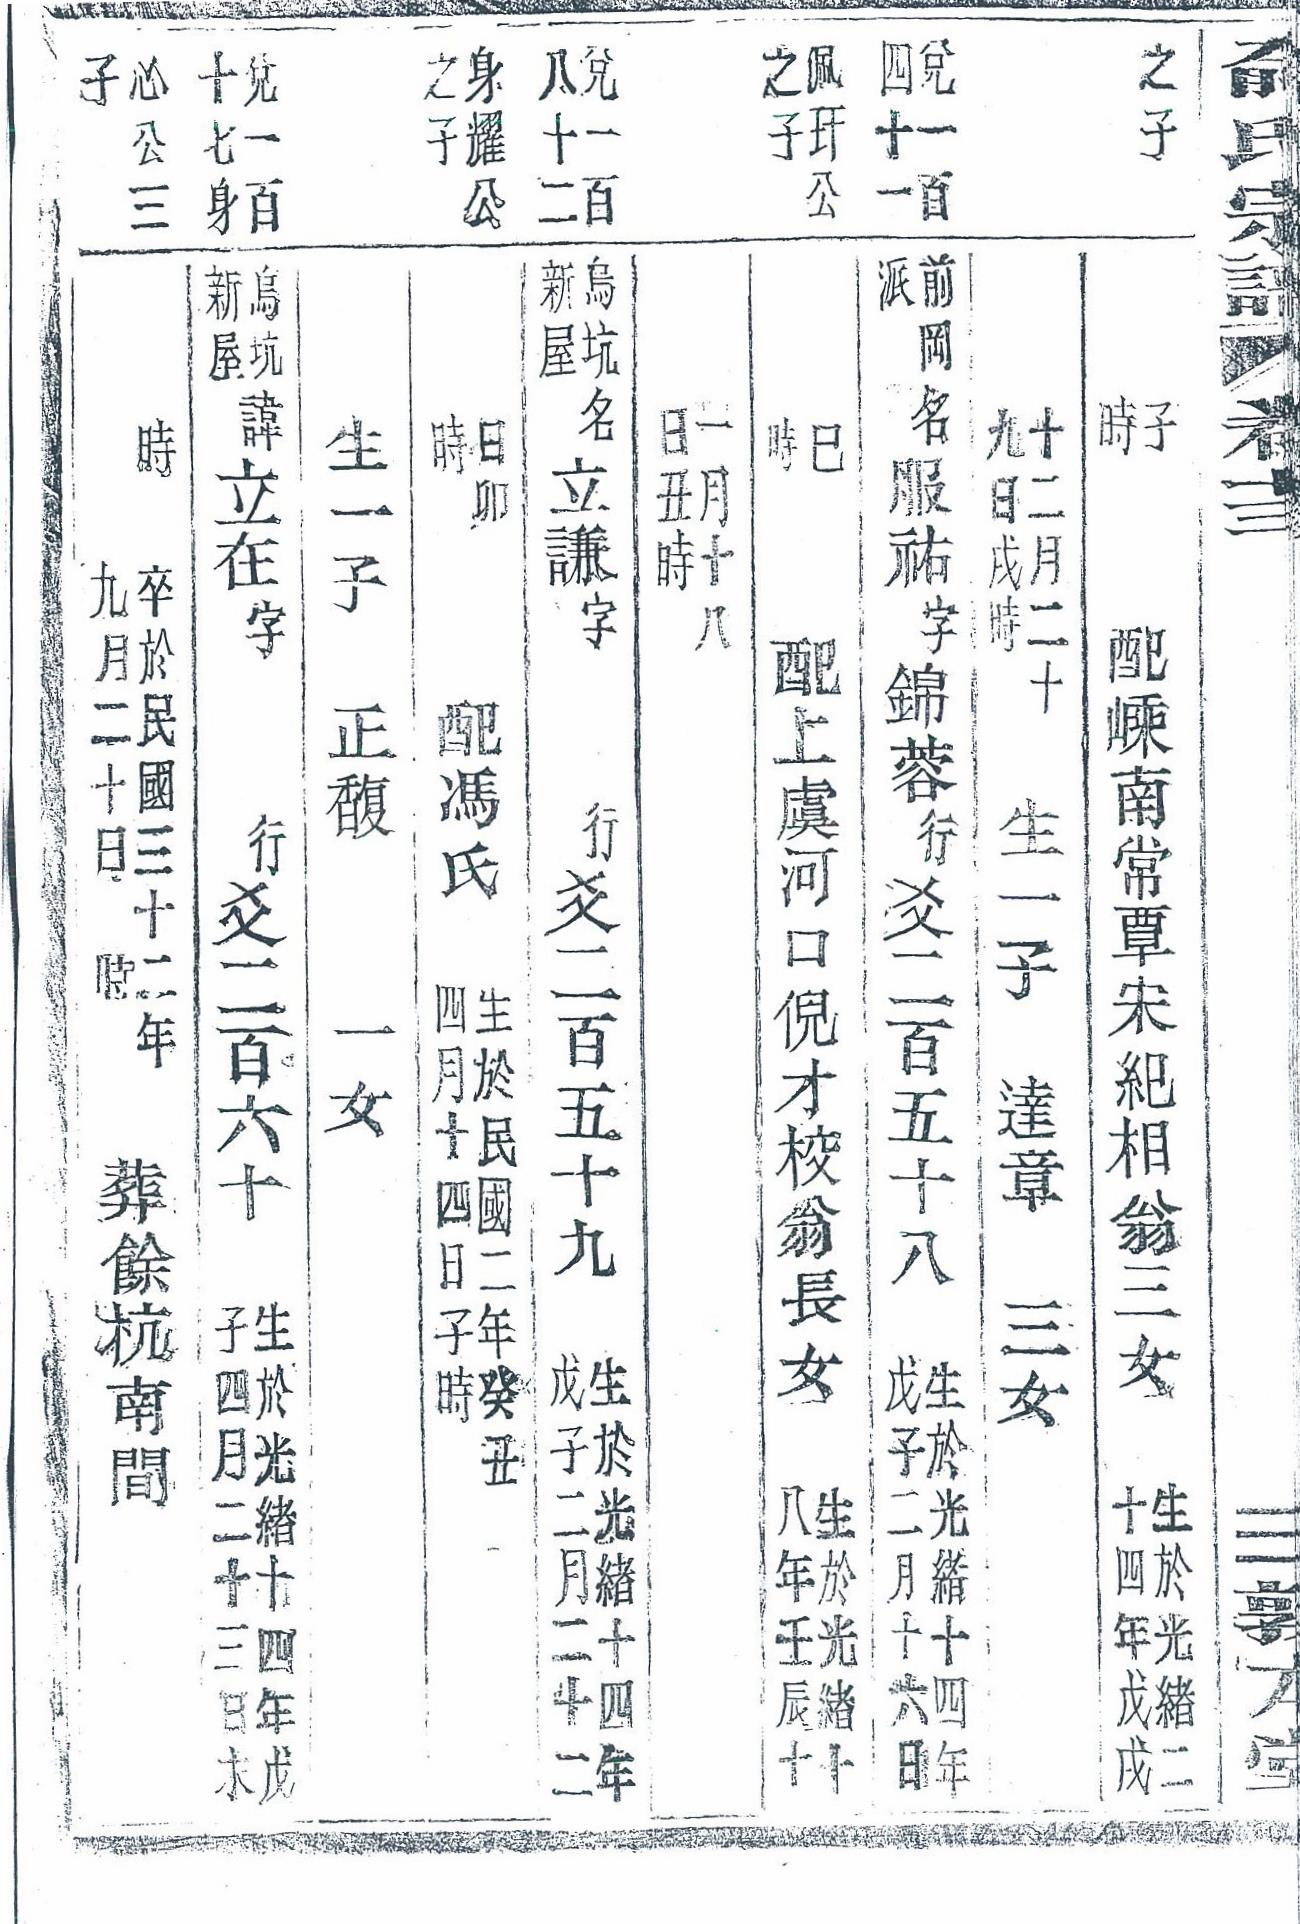 俞氏宗譜 卷十三 三 敦本堂
之子
子
時
配嵊南常覃宋紀相翁三女
生於光緒二
十四年戊戌
十二月二十
九日戌時
生一子
達章
三女
兌一百
四十一
前岡
派
名服祐字錦蓉行爻二百五十八
生於光緒十四年
戊子二月十六日
佩玕公
之子
巳
時
配上虞河口倪才校翁長女
生於光緒十
八年壬辰十
一月十八
日丑時
兌一百
八十二
烏坑
新屋
名立謙字
行爻二百五十九
生於光緒十四年
戊子二月二十二
身耀公
之子
日卯
時
配馮氏
生於民國二年癸丑
四月十四日子時
生一子
正馥
一女
兌一百
十七身
烏坑
新屋
諱立在字
行爻二百六十
生於光緒十四年戊
子四月二十三日未
心公三
子
時
卒於民國三十二年
九月二十日
時
葬餘杭南間